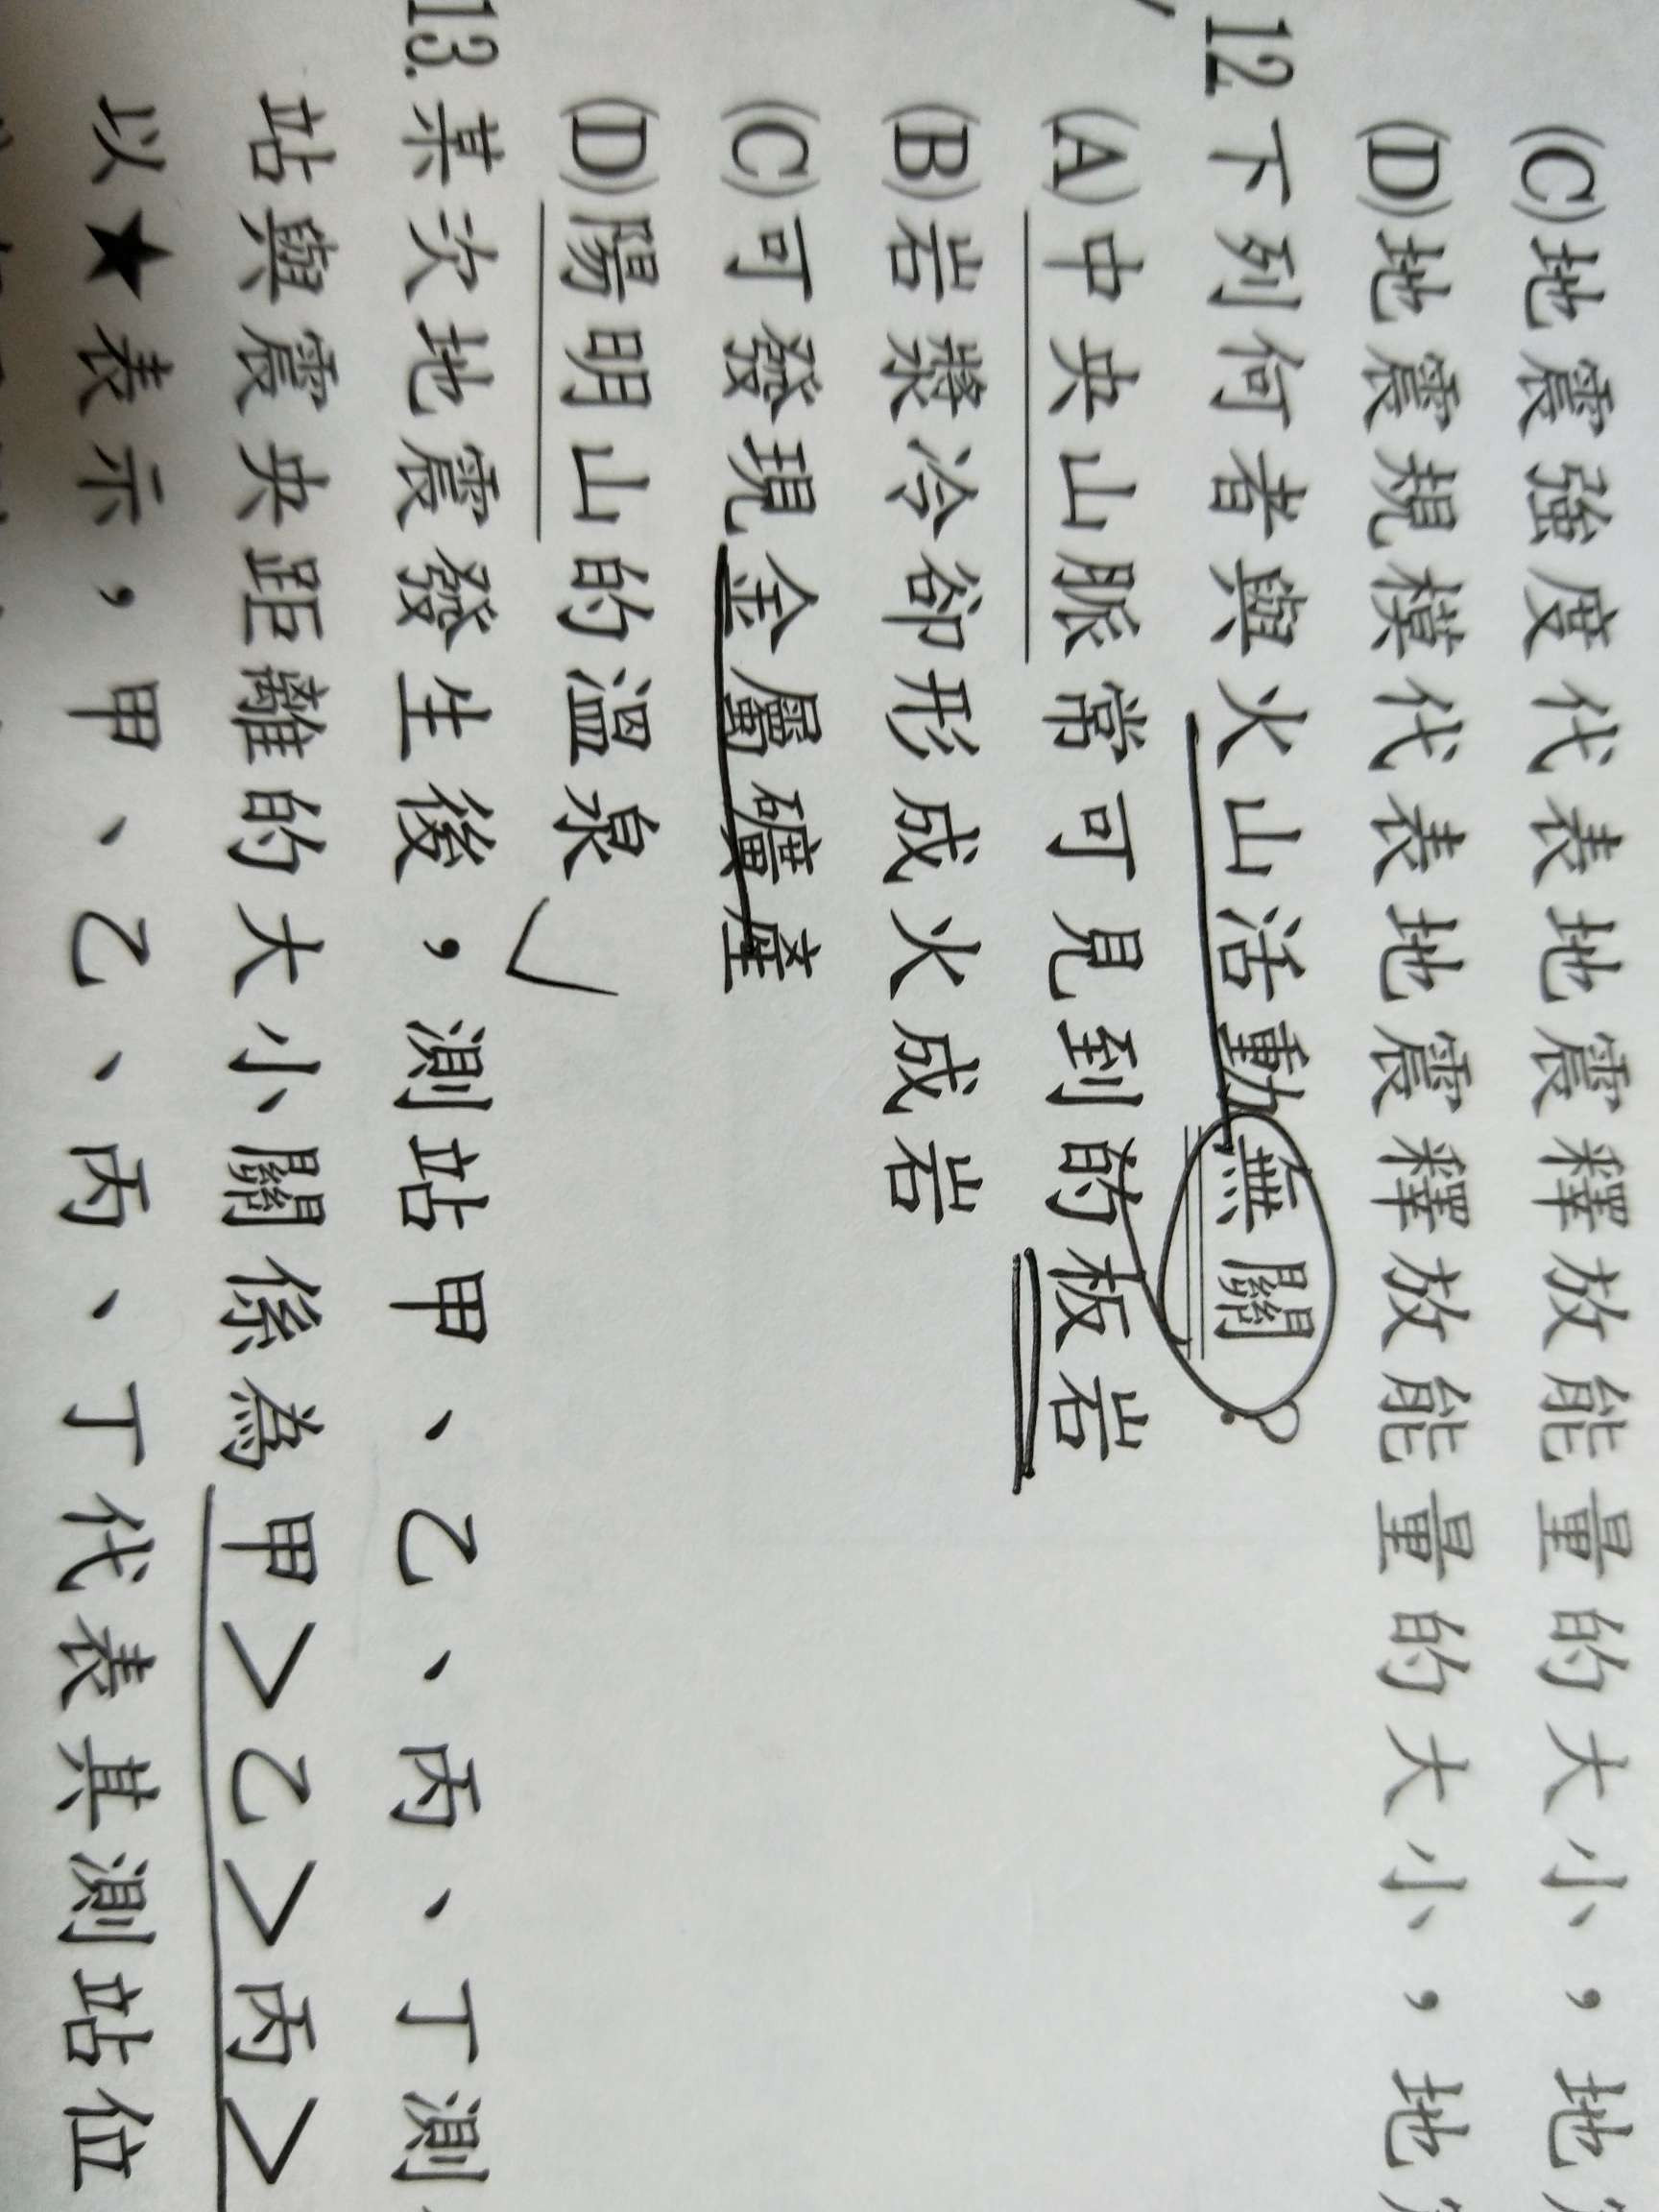 (C)地震強度代表地震釋放能量的大小，地
(D)地震規模代表地震釋放能量的大小，地
12.下列何者與火山活動無關？
(A)中央山脈常可見到的板岩
(B)岩漿冷卻形成火成岩
(C)可發現金屬礦產
(D)陽明山的溫泉
13.某次地震發生後，測站甲、乙、丙、丁測
站與震央距離的大小關係為甲＞乙＞丙＞
以★表示，甲、乙、丙、丁代表其測站位